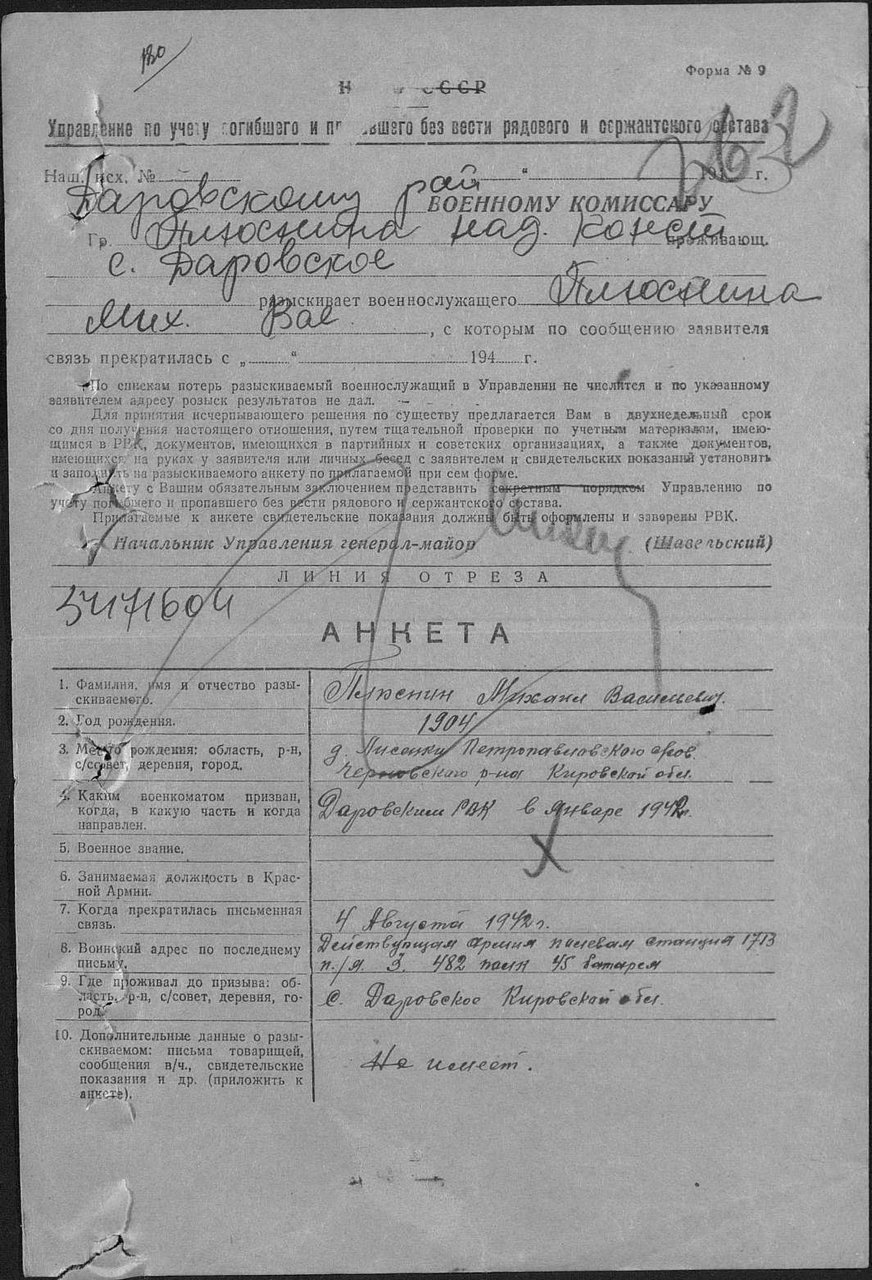 180
Форма № 9
Н СССР
Управление по учету погибшего и пропавшего без вести рядового и сержантского состава
Наш. исх. № " 194 г.
Даровскому рай ВОЕННОМУ КОМИССАРУ
Гр. Плюснина Над. Конст проживающ.
с. Даровское
разыскивает военнослужащего Плюснина
Мих. Вас , с которым по сообщению заявителя
связь прекратилась с „ “ 194 г.
По спискам потерь разыскиваемый военнослужащий в Управлении не числится и по указанному
заявителем адресу розыск результатов не дал.
Для принятия исчерпывающего решения по существу предлагается Вам в двухнедельный срок
со дня получения настоящего отношения, путем тщательной проверки по учетным материалам, имею-
щимся в РВК, документов, имеющихся в партийных и советских организациях, а также документов,
имеющихся на руках у заявителя или личных бесед с заявителем и свидетельских показаний установить
и заполнить на разыскиваемого анкету по прилагаемой при сем форме.
Анкету с Вашим обязательным заключением представить секретным порядком Управлению по
учету погибшего и пропавшего без вести рядового и сержантского состава.
Прилагаемые к анкете свидетельские показания должны быть оформлены и заверены РВК.
Начальник Управления генерал-майор (Шавельский)
ЛИНИЯ ОТРЕЗА
54171604
АНКЕТА
1. Фамилия, имя и отчество разы-
скиваемого.
Плюснин Михаил Васильевич.
2. Год рождения.
1904
3. Место рождения: область, р-н,
с/совет, деревня, город.
д. Лисенки Петропавловского
Черновского р-на Кировской обл.
4. Каким военкоматом призван,
когда, в какую часть и когда
направлен.
Даровским РВК в январе 1942г.
5. Военное звание.
6. Занимаемая должность в Крас-
ной Армии.
7. Когда прекратилась письменная
связь.
4 Августа 1942 г.
8. Воинский адрес по последнему
письму.
Действующая армия полевая станция 1713
п./я. 3. 482 полк 45 батарея
9. Где проживал до призыва: об-
ласть, р-н, с/совет, деревня, го-
род.
с. Даровское Кировской обл.
10. Дополнительные данные о разы-
скиваемом: письма товарищей,
сообщения в/ч., свидетельские
показания и др. (приложить к
анкете).
Не имеет.